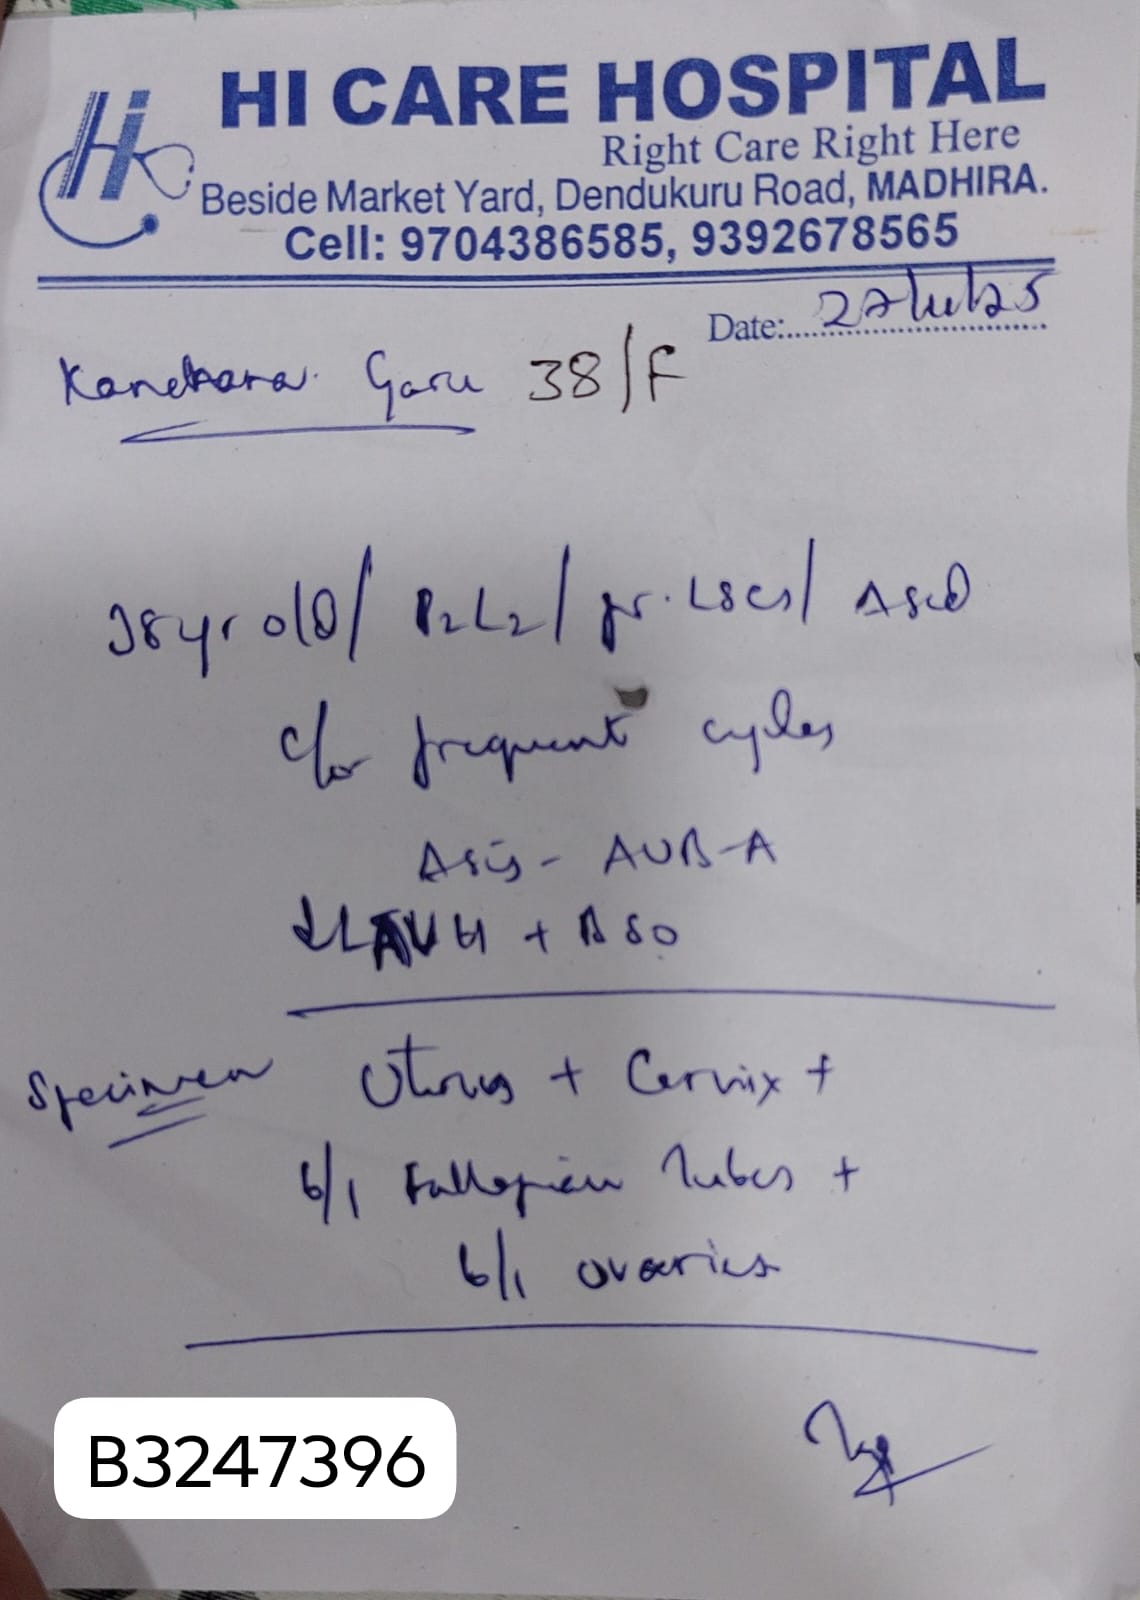 Hi
HI CARE HOSPITAL
Right Care Right Here
Beside Market Yard, Dendukuru Road, MADHIRA.
Cell: 9704386585, 9392678565
Date:
Garu 38/F
38yr old/ P2L2/ pr. LSCS/
c/o frequent cycles
AUB-A
LAVH + BSO
Specimen Uterus + Cervix +
b/l Fallopian Tubes +
b/l ovaries
B3247396